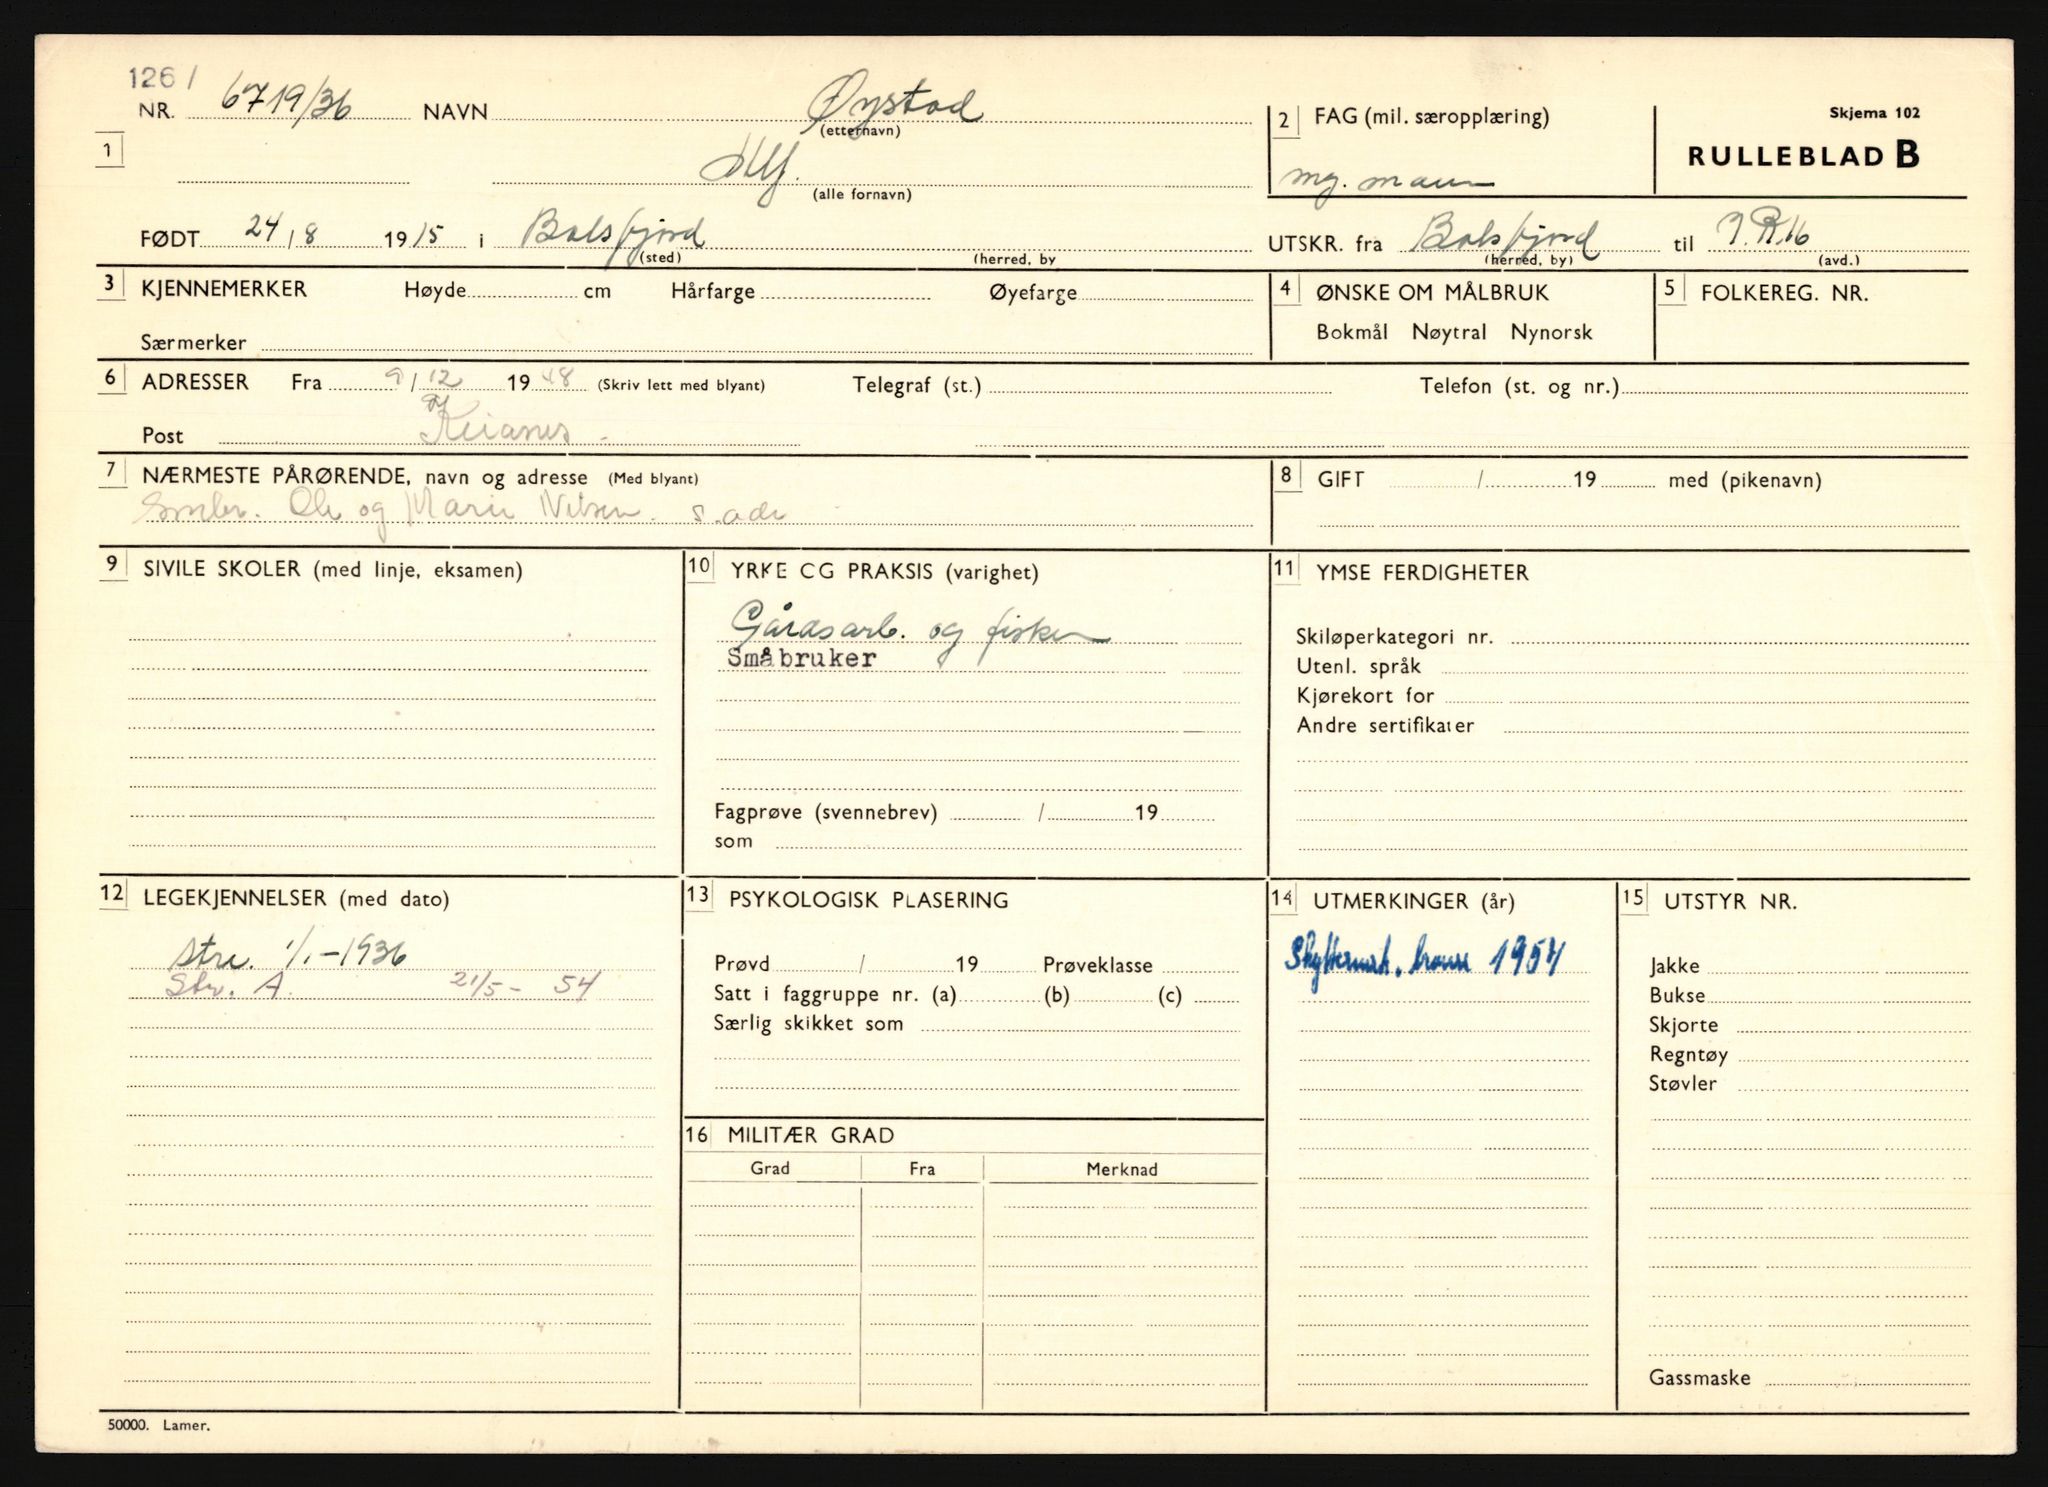 1261
NR. 6719/36 NAVN Øystad
(etternavn)
2 FAG (mil. særopplæring)
Skjema 102
RULLEBLAD B
1
Alf.
(alle fornavn)
mg. mann
FØDT 24/8 1915 i Balsfjord
(sted) (herred, by
UTSKR. fra Balsfjord til I.R.16
(herred, by) (avd.)
3 KJENNEMERKER Høyde cm Hårfarge Øyefarge
Særmerker
4 ØNSKE OM MÅLBRUK
Bokmål Nøytral Nynorsk
5 FOLKEREG. NR.
6 ADRESSER Fra 9/12 1948 (Skriv lett med blyant) Telegraf (st.) Telefon (st. og nr.)
Post
7 NÆRMESTE PÅRØRENDE, navn og adresse (Med blyant)
Ole og Marie Nilsen s. adr
8 GIFT / 19 med (pikenavn)
9 SIVILE SKOLER (med linje, eksamen)
10 YRKE CG PRAKSIS (varighet)
Gårdsarb. og fisker
Småbruker
Fagprøve (svennebrev) / 19
som
11 YMSE FERDIGHETER
Skiløperkategori nr.
Utenl. språk
Kjørekort for
Andre sertifikater
12 LEGEKJENNELSER (med dato)
Stri. 1/1-1936
Str. A. 21/5- 54
13 PSYKOLOGISK PLASERING
Prøvd / 19 Prøveklasse
Satt i faggruppe nr. (a) (b) (c)
Særlig skikket som
14 UTMERKINGER (år)
Skyttermrk. bronse 1954
15 UTSTYR NR.
Jakke
Bukse
Skjorte
Regntøy
Støvler
Gassmaske
16 MILITÆR GRAD
Grad Fra Merknad
50000. Lamer.